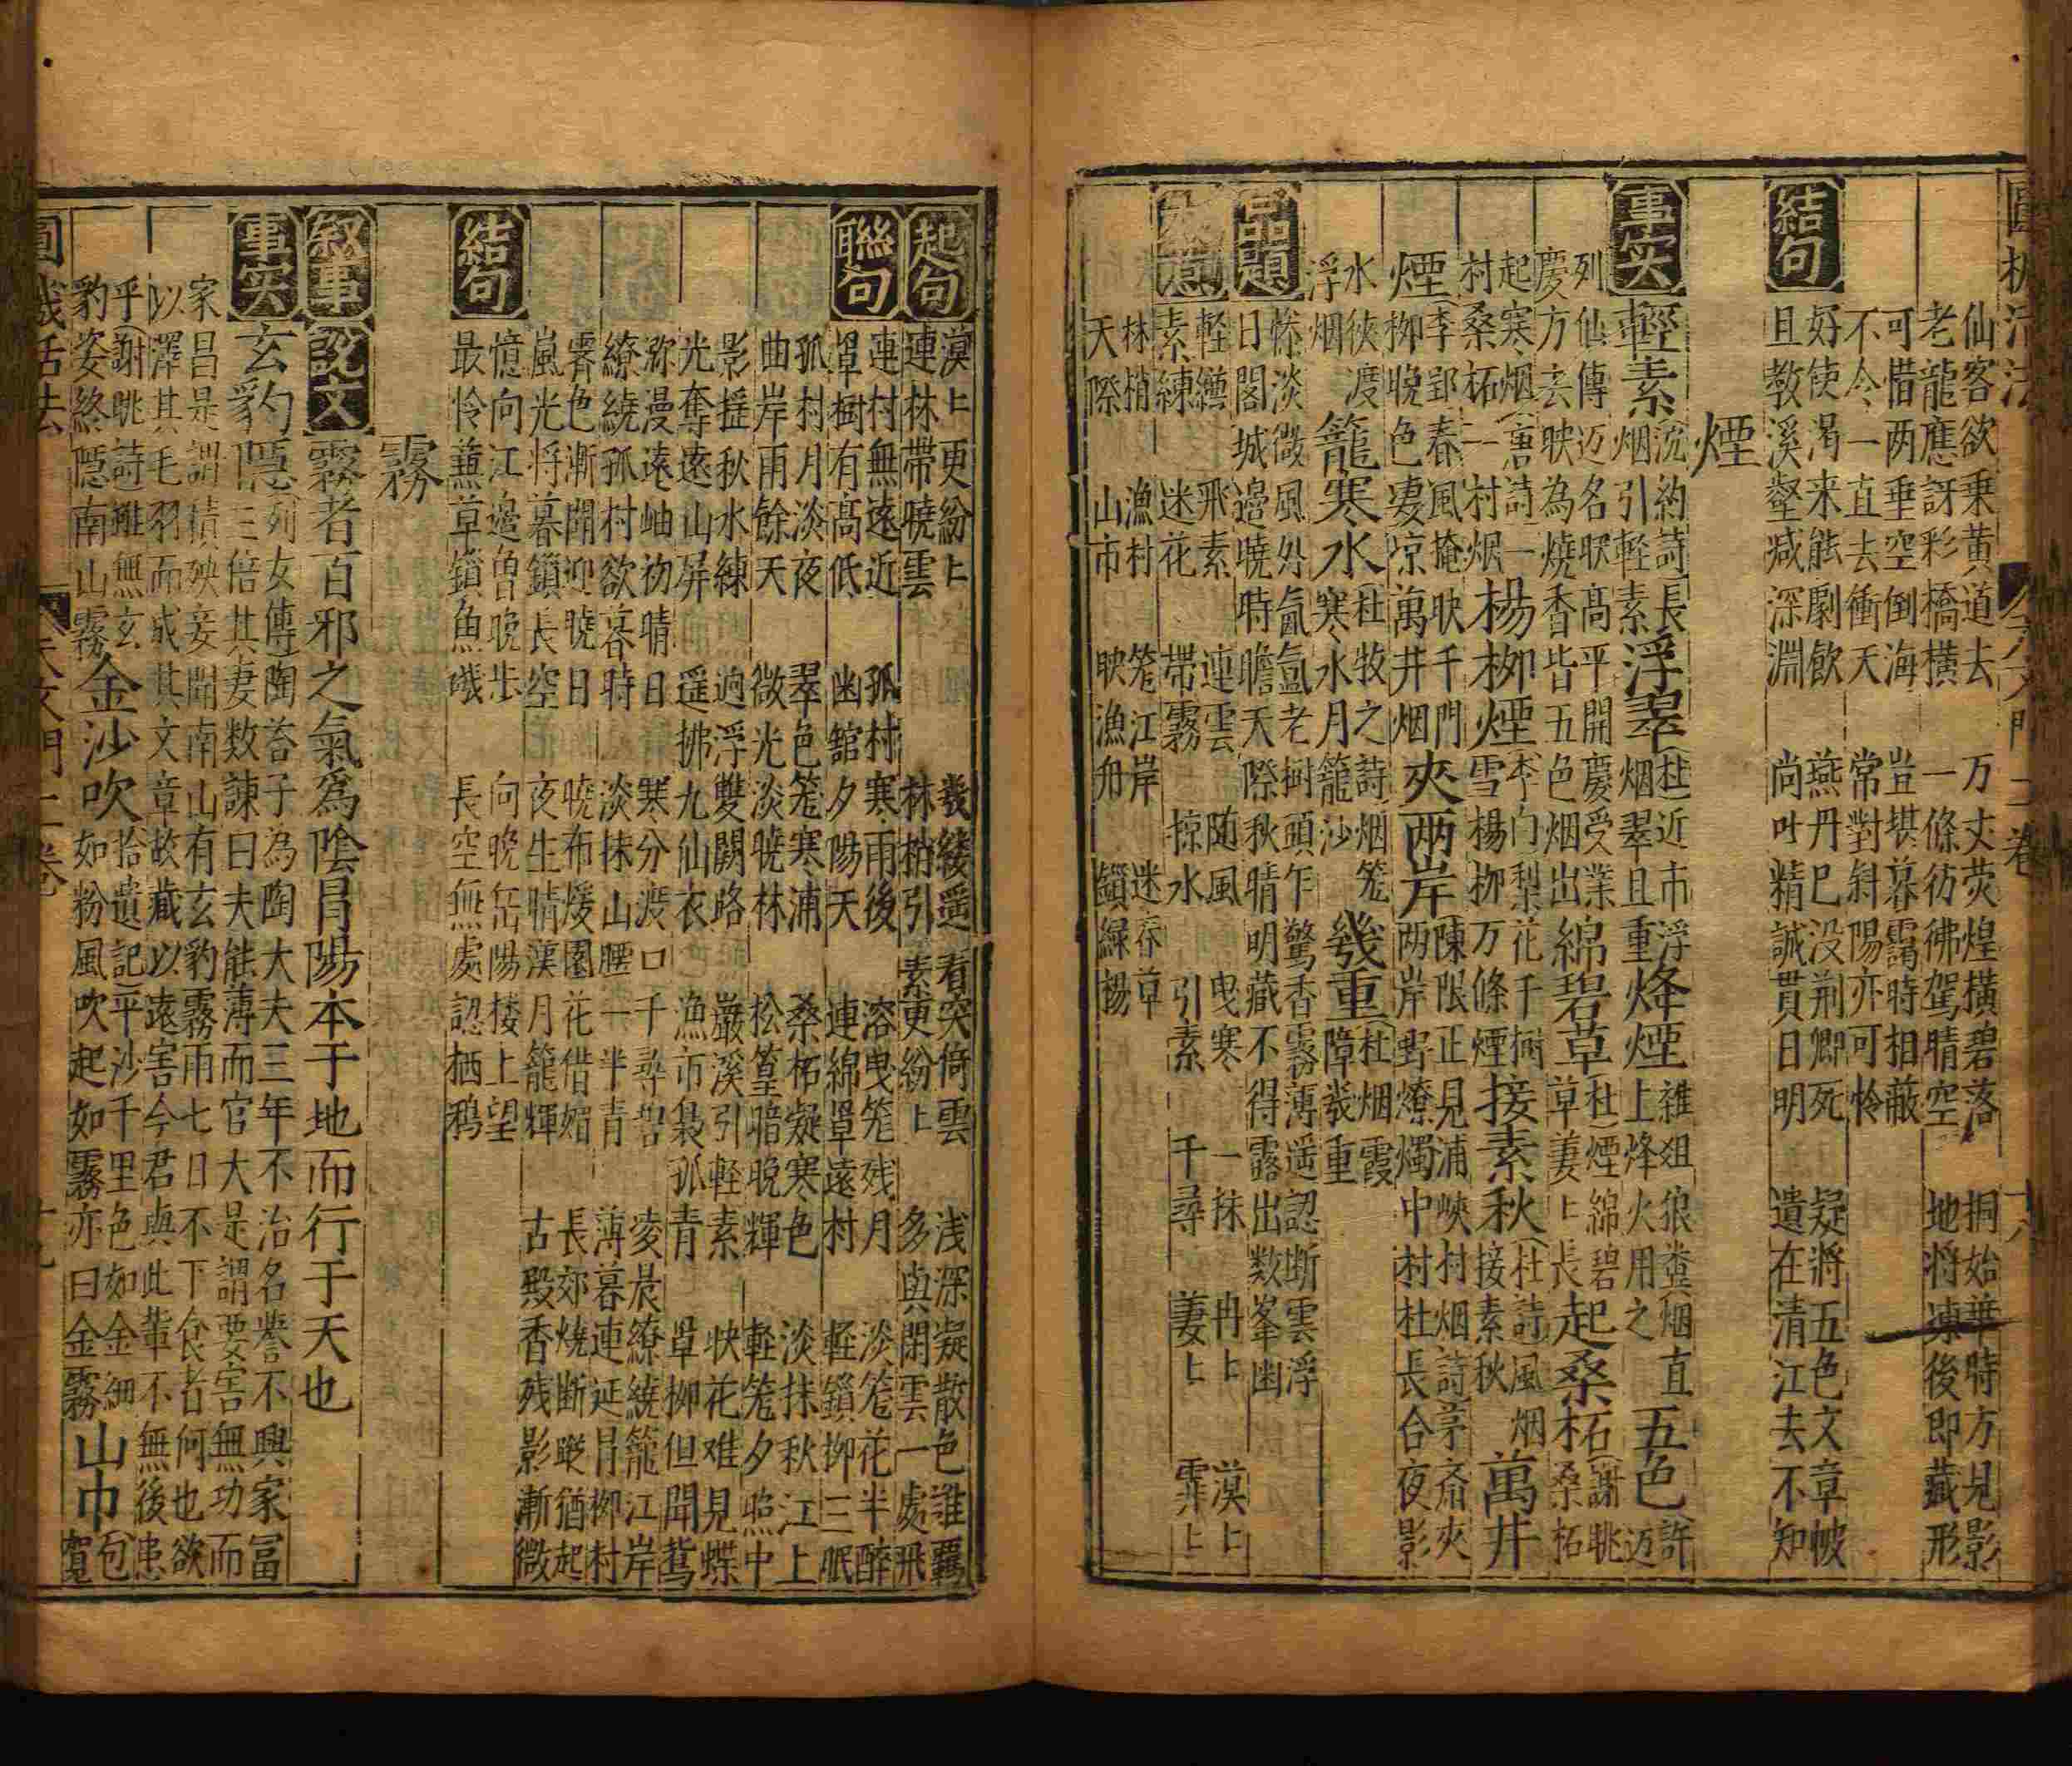 仙客欲乗黄道去　万丈熒煌横碧落　桐始華時方見影
老龍應訝彩橋横　一條彷彿駕晴空　地將凍後即藏形
可惜两垂空倒海　豈堪暮靄時相蔽
不令一直去衝天　常對斜陽亦可怜
結句
好使渇来能劇飲　燕丹已没荆卿死　疑將五色文章帔
且教溪壑減深淵　尚叶精誠貫日明　遺在清江去不知
煙
事实
輕素沈約詩長烟引軽素
浮翠杜近市浮烟翠且重
烽煙雜俎狼糞烟直上烽火用之
五色許邁
列仙傳迈名映高平開慶受業
慶方去映為燒香皆五色烟出
綿碧草杜煙綿碧草萋上長
起桑柘謝眺桑柘
起寒烟唐詩一
村桑柘一村烟
楊柳煙李雪门梨花千樹楊柳万條煙
接素秋杜詩風烟接素秋
萬井
煙李郢春風掩映千門柳晚色凄凉萬井烟
夾两岸陳限正見浦峽村烟詩茅斎夾两岸野燎燭中村杜長合夜影
水筱渡浮烟
籠寒水杜牧之詩烟笼寒水月籠沙
幾重杜烟霞障幾重
品題
惨淡微風外氤氲老樹頭乍驚香霧薄遥認断雲浮
日閣城邉曉時瞻天際秋晴明藏不得露出数峯幽
大意
軽縑　飛素　連雲　随風　曳寒　一抹　冉上　漠上
素練　迷花　帶霧　掠水　引素　千尋　萋上　霏上
林梢　漁村　笼江岸　迷春草
天際　山市　映漁舟　鎖緑楊
起句
漠上更紛上　幾縷遥看突倚雲　浅深凝散色誰覊
連林帶曉雲　林梢引素更紛上　多與閑雲一處飛
聯句
連村無遠近　孤村寒雨後　溶曳笼残月　淡笼花半醉
罩樹有高低　幽舘夕陽天　連綿罩遠村　軽鎖柳三眠
孤村月淡夜　翠色笼寒浦　桑柘凝寒色　淡抹秋江上
曲岸雨餘天　微光淡曉林　松篁暗晚輝　軽笼夕照中
影揺秋水練　逈浮雙闕路　巖溪引軽素　映花难見蝶
光奪遠山屏　遥拂九仙衣　漁市裊孤青　罩柳但聞鶯
弥漫遠岫初晴日　寒分渡口千尋碧　凌晨繚繞籠江岸
繚繞孤村欲暮時　淡抹山腰一半青　薄暮連延罥柳村
霽色漸開迎曉日　曉布煖園花借媚　長郊燒断蹤猶起
嵐光将暮鎖長空　夜生晴漢月籠輝　古殿香残影漸微
結句
憶向江邉曽晚歩　向晚岳陽楼上望
最怜蕪草鎖魚磯　長空無處認栖鴉
霧
叙事
說文霧者百邪之氣爲陰冒陽本于地而行于天也
事实
玄豹隠列女傳陶荅子為陶大夫三年不治名譽不興家冨
三倍其妻数諫曰夫能薄而官大是謂嬰害無功而
家昌是謂積殃妾聞南山有玄豹霧雨七日不下食者何也欲
以澤其毛羽而成其文章故藏以遠害今君與此輩不無後患
乎謝眺詩雖無玄
豹姿終隠南山霧
金沙吹拾遺記平沙千里色如金細
如粉風吹起如霧亦曰金霧
山巾